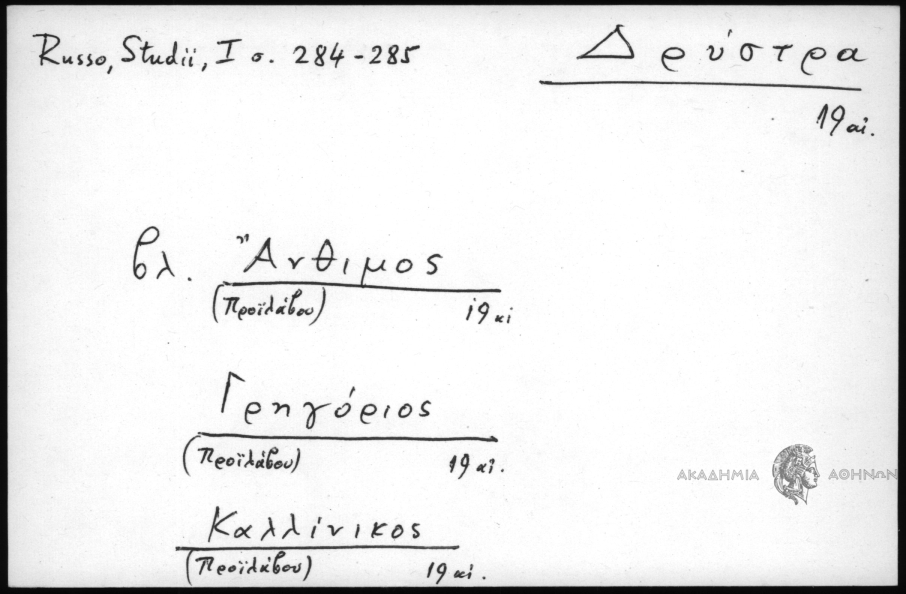 Russo, Studii, I σ. 284-285
Δρύστρα
19 αἰ.
βλ. Ἄνθιμος
(Προϊλάβου) 19 αἰ
Γρηγόριος
(Προϊλάβου) 19 αἰ.
ΑΚΑΔΗΜΙΑ ΑΘΗΝΩΝ
Καλλίνικος
(Προϊλάβου) 19 αἰ.